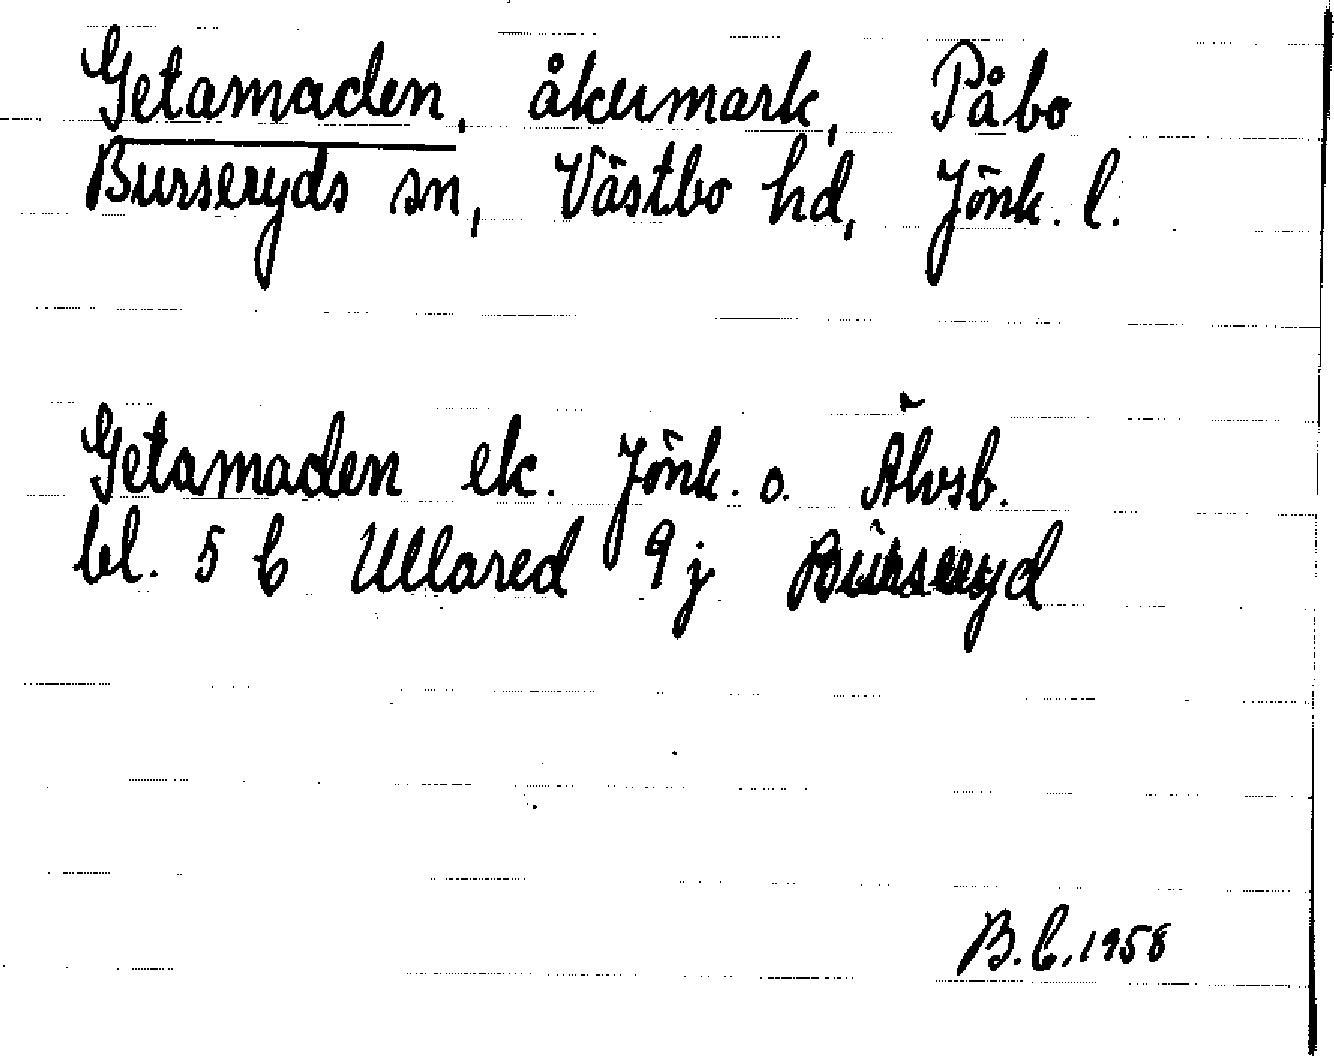 Getamaden, åkermark, Påbo
Burseryds sn, Västbo hd, Jönk. l.
Getamaden ek. Jönk. o. Älvsb.
bl. 5 b Ullared 9j Burseryd
B.C. 1958